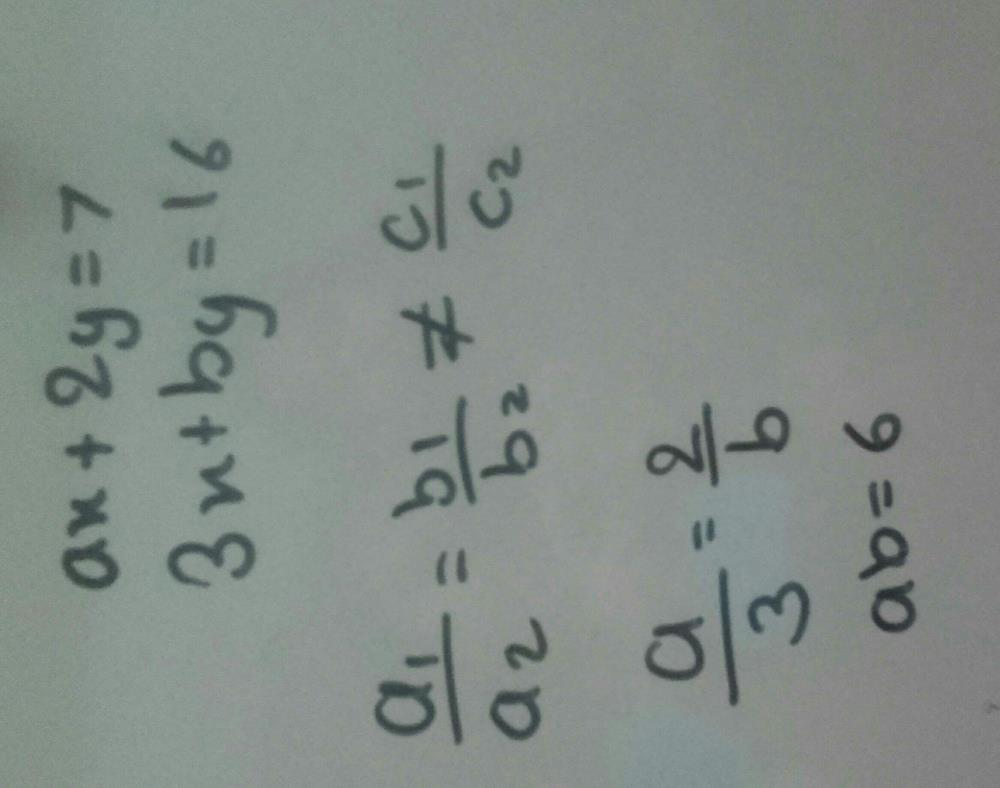 ax + 2y = 7
3x + by = 16
a1/a2 = b1/b2 ≠ c1/c2
a/3 = 2/b
ab = 6